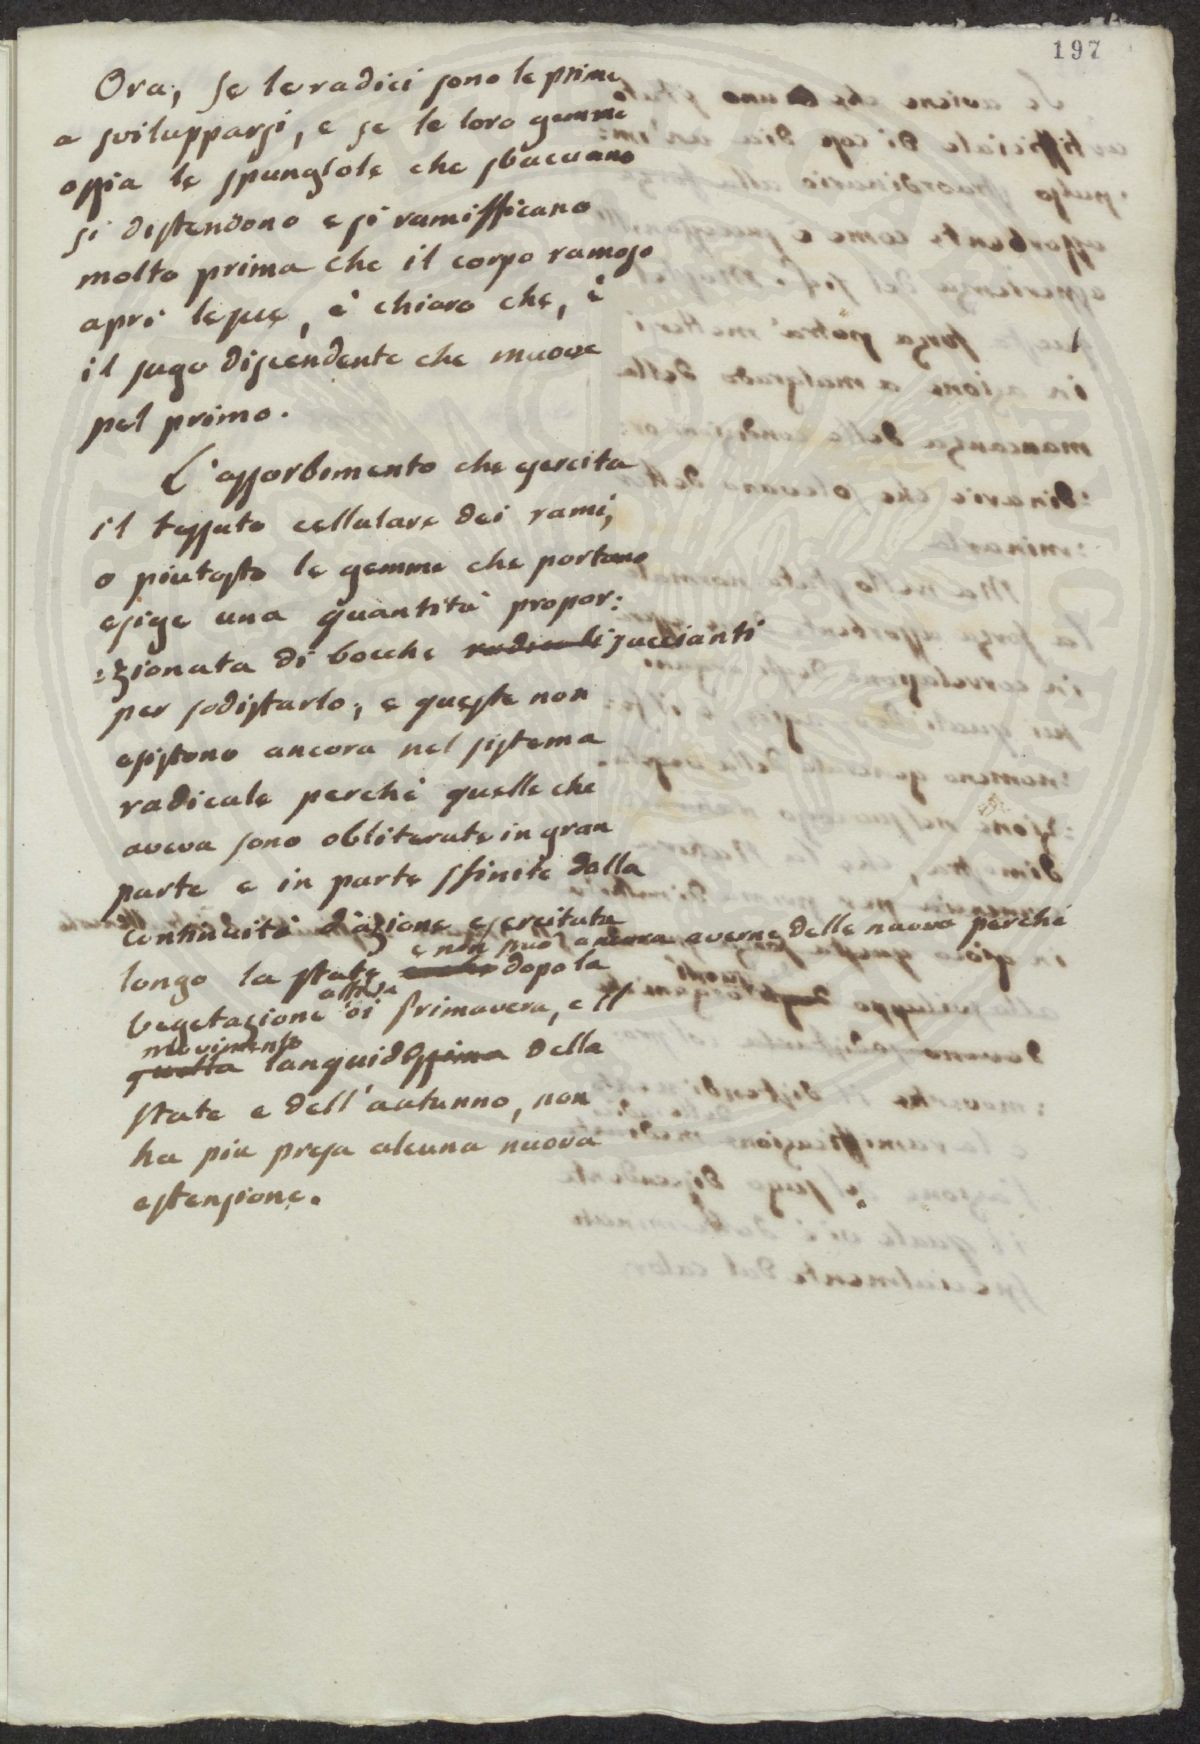 197
Ora, se le radici sono le prime
a svilupparsi, e se le loro gemme
ossia le spungiole che sbucanno
si distendono e si ramifficano
molto prima che il corpo ramoso
apri le sue, è chiaro che, è
il sugo discendente che muove
pel primo.
L'assorbimento che esercita
il tessuto cellulare dei rami,
o piutosto le gemme che portano
esige una quantità propor:
:zionata di bocche radicali succianti
per sodisfarlo, e queste non
esistono ancora nel sistema
radicale perchè quelle che
aveva sono obliterate in gran
parte e in parte sfinite dalla
continuità d'azione esercitata
e non può ancora averne delle nuove perché
longo la state dopo la
attiva
vegetazione di primavera, e il
movimento
quella languidissima della
state e dell'autunno, non
ha piu presa alcuna nuova
estensione.